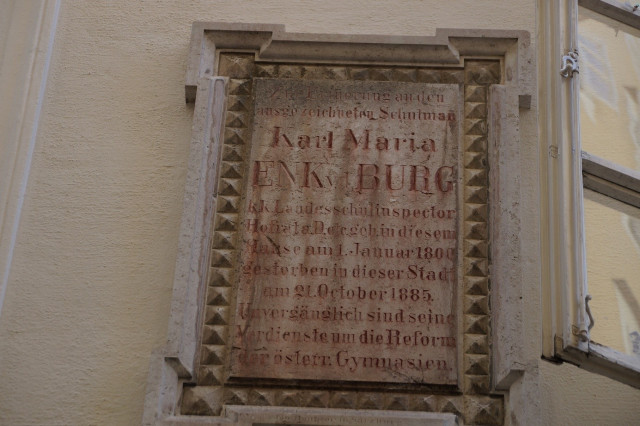 Erinnerung an den
ausgezeichneten Schulman
Karl Maria
ENK v.d. BURG
k.k. Landesschulinspector
Hofrat a.D. etc. geb. in diesem
Hause am 1. Januar 180
gestorben in dieser Stadt
am 21. October 1885.
Unvergänglich sind seine
Verdienste um die Reform
der österr. Gymnasien.